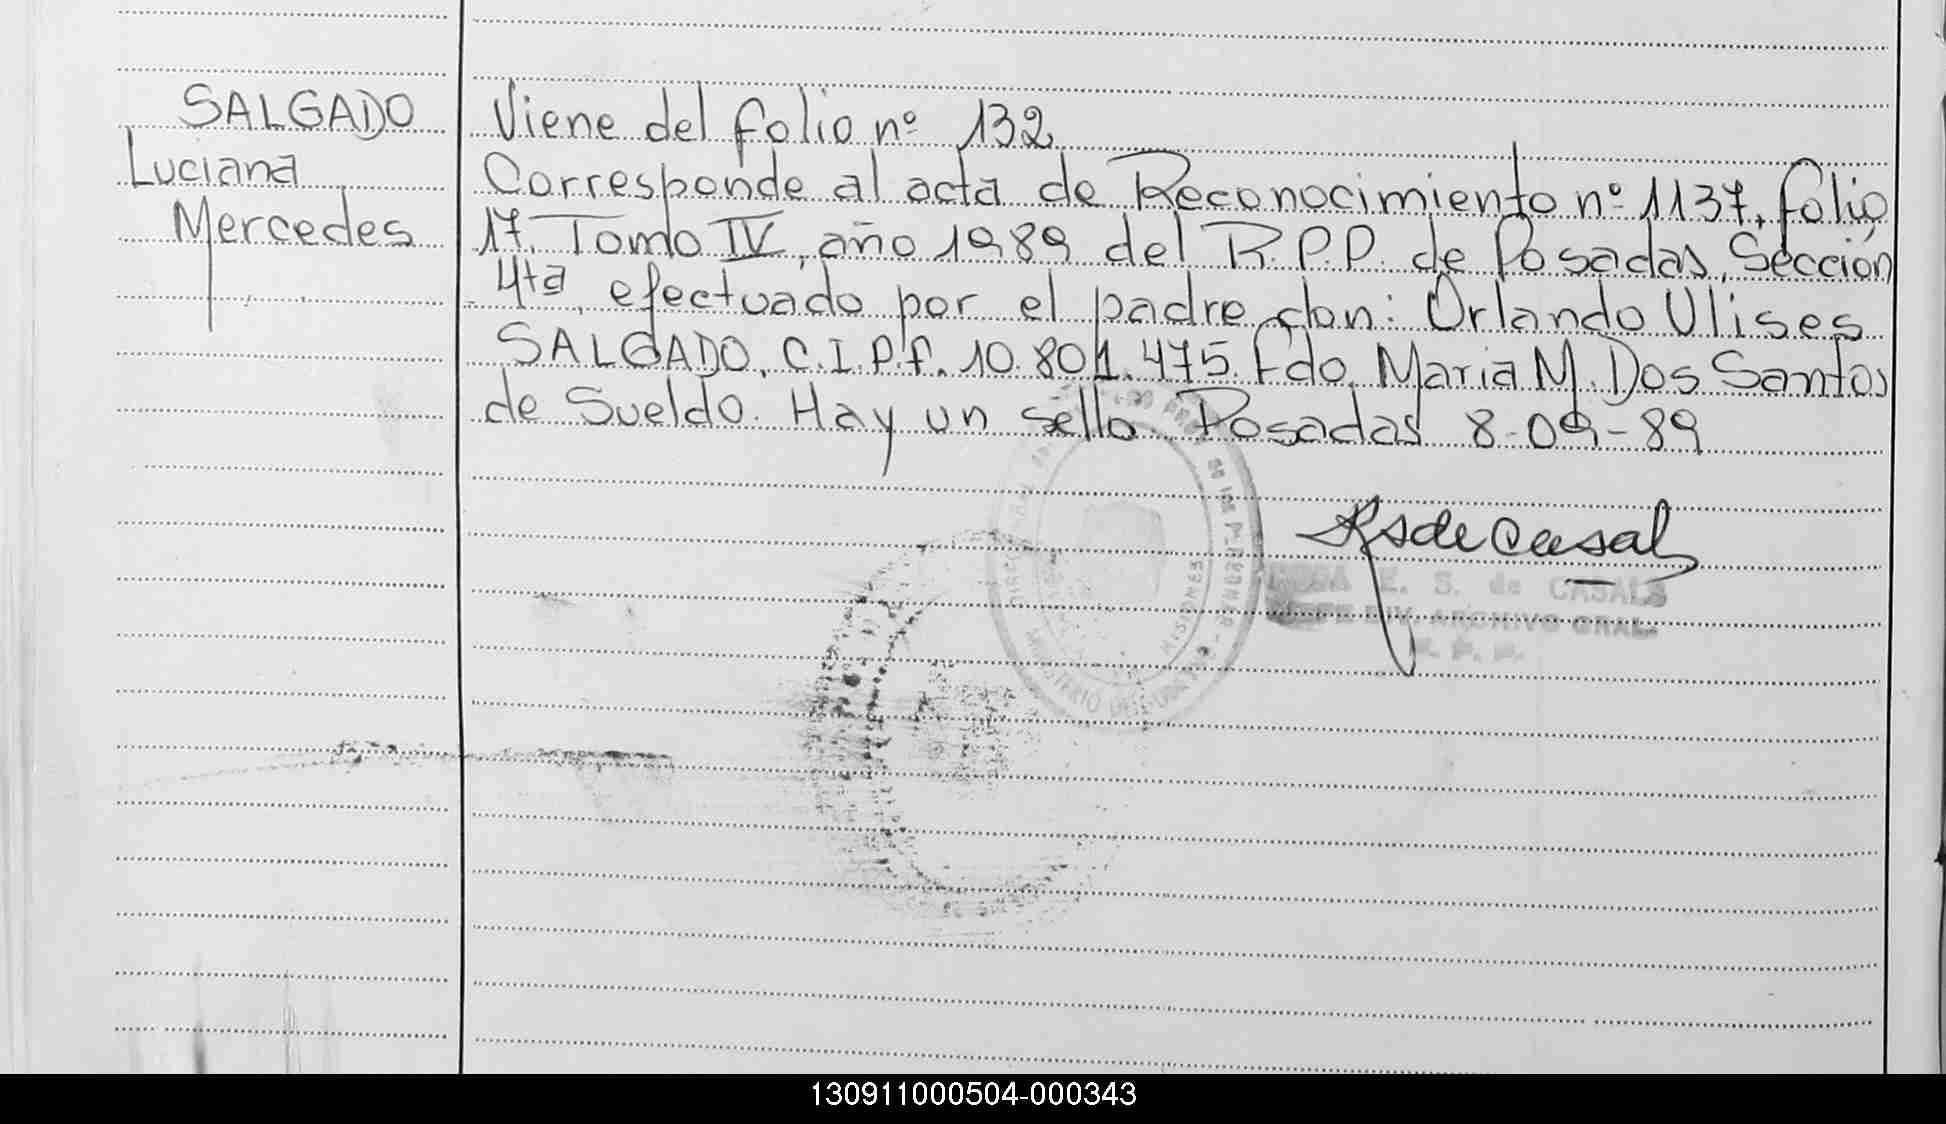 SALGADO
Luciana
Mercedes
Viene del folio nº 132
Corresponde al acta de Reconocimiento nº 1137, folio
17, Tomo IV, año 1989 del R.P.P. de Posadas, Sección
4ta, efectuado por el padre don: Orlando Ulises
SALGADO, C.I.P.f. 10.801.475. Fdo. Maria M. Dos Santos
de Sueldo. Hay un sello Posadas 8-09-89
E. S. de CASALS
DIV. ARCHIVO GRAL.
MISIONES
130911000504-000343